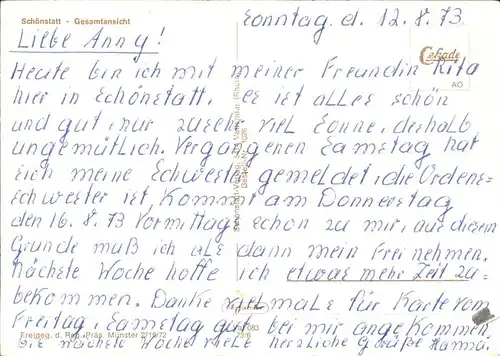 Schönstatt - Gesamtansicht
Sonntag. d. 12. 8. 73.
Liebe Anny!
Cekade
AO
Heute bin ich mit meiner Freundin Rita
hier in Schönstatt, es ist alles schön
und gut, nur zuviel Sonne, deshalb
ungemütlich. Vergangenen Samstag hat
sich meine Schwester gemeldet, die Ordens=
schwester ist, Kommt am Donnerstag
den 16. 8. 73 Vormittag schon zu mir, aus diesem
Grunde muß ich als dann mein Frei nehmen.
Nächste Woche hoffe ich etwas mehr Zeit zu=
bekommen. Danke vielmals für Karte vom
Freitag, Samstag gut bei mir angekommen.
Bis nächste Woche viele herzliche Grüße Hanna.
Freigeg. d. Reg. Präs. Münster